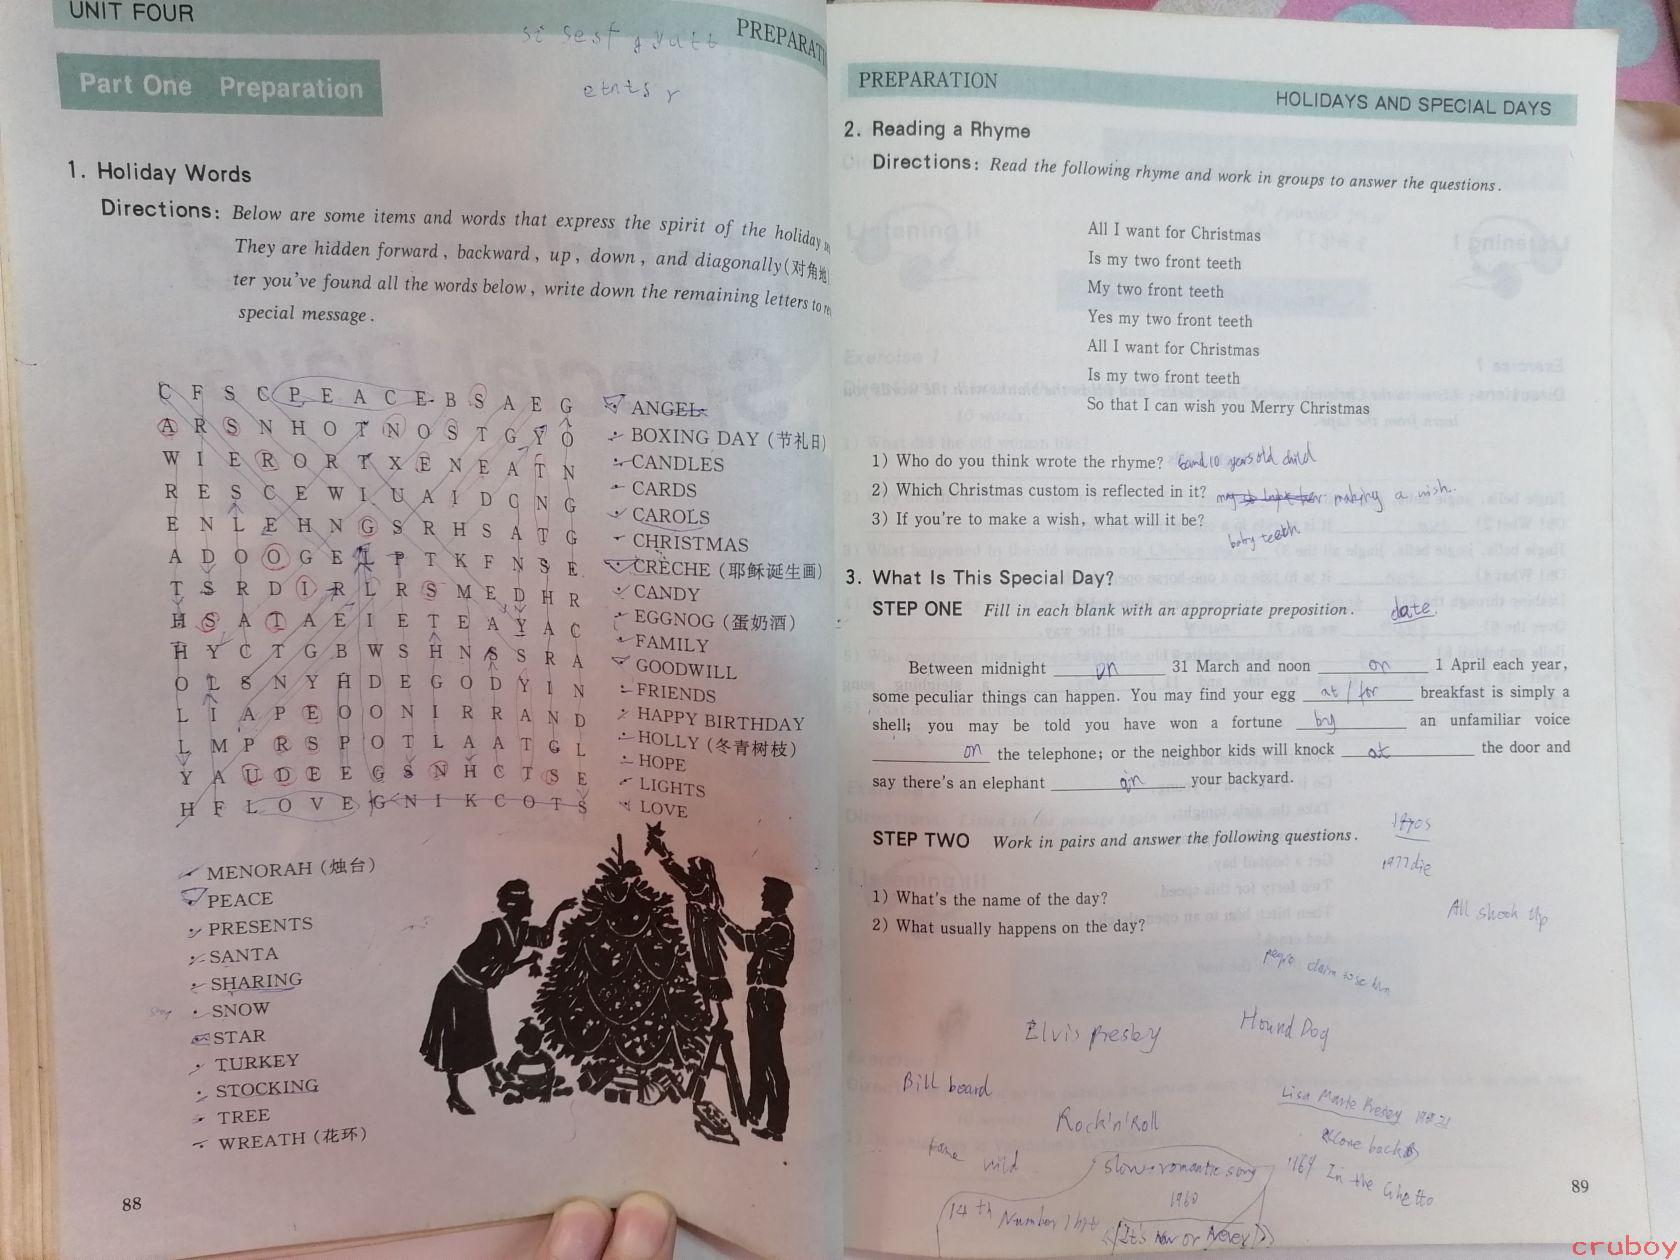 UNIT FOUR
PREPARATI
st sesf g yutt
etnts r
Part One Preparation
1. Holiday Words
Directions: Below are some items and words that express the spirit of the holiday
They are hidden forward, backward, up, down, and diagonally(对角地)
ter you've found all the words below, write down the remaining letters to
special message.
C F S C P E A C E B S A E G
A R S N H O T N O S T G Y O
W I E R O R T X E N E A T N
R E S C E W I U A I D C N G
E N L E H N G S R H S A T G
A D O O G E L P T K F N S E
T S R D I R L R S M E D H R
H S A T A E I E T E A Y A C
H Y C T G B W S H N S S R A
O L S N Y H D E G O D Y I N
L I A P E O O N I R R A N D
L M P R S P O T L A A T G L
Y A U D E E G S N H C T S E
H F L O V E G N I K C O T S
ANGEL
BOXING DAY (节礼日)
CANDLES
CARDS
CAROLS
CHRISTMAS
CRECHE (耶稣诞生画)
CANDY
EGGNOG (蛋奶酒)
FAMILY
GOODWILL
FRIENDS
HAPPY BIRTHDAY
HOLLY (冬青树枝)
HOPE
LIGHTS
LOVE
MENORAH (烛台)
PEACE
PRESENTS
SANTA
SHARING
SNOW
STAR
TURKEY
STOCKING
TREE
WREATH (花环)
88
PREPARATION
HOLIDAYS AND SPECIAL DAYS
2. Reading a Rhyme
Directions: Read the following rhyme and work in groups to answer the questions.
All I want for Christmas
Is my two front teeth
My two front teeth
Yes my two front teeth
All I want for Christmas
Is my two front teeth
So that I can wish you Merry Christmas
1) Who do you think wrote the rhyme? 6and 10 years old child
2) Which Christmas custom is reflected in it? making a wish.
3) If you're to make a wish, what will it be?
baby teeth
3. What Is This Special Day?
STEP ONE Fill in each blank with an appropriate preposition. date
Between midnight on 31 March and noon on 1 April each year,
some peculiar things can happen. You may find your egg at/for breakfast is simply a
shell; you may be told you have won a fortune by an unfamiliar voice
on the telephone; or the neighbor kids will knock at the door and
say there's an elephant in your backyard.
STEP TWO Work in pairs and answer the following questions.
1977 die
1) What's the name of the day?
All shook up
2) What usually happens on the day?
claim to see him
Elvis Presley
Hound Dog
Bill board
Lisa Marie Presley
Rock'n'Roll
Come back
slow romantic song
'169 In the Ghetto
1960
14 th Number 1 hit
《It's now or Never》
89
cruboy